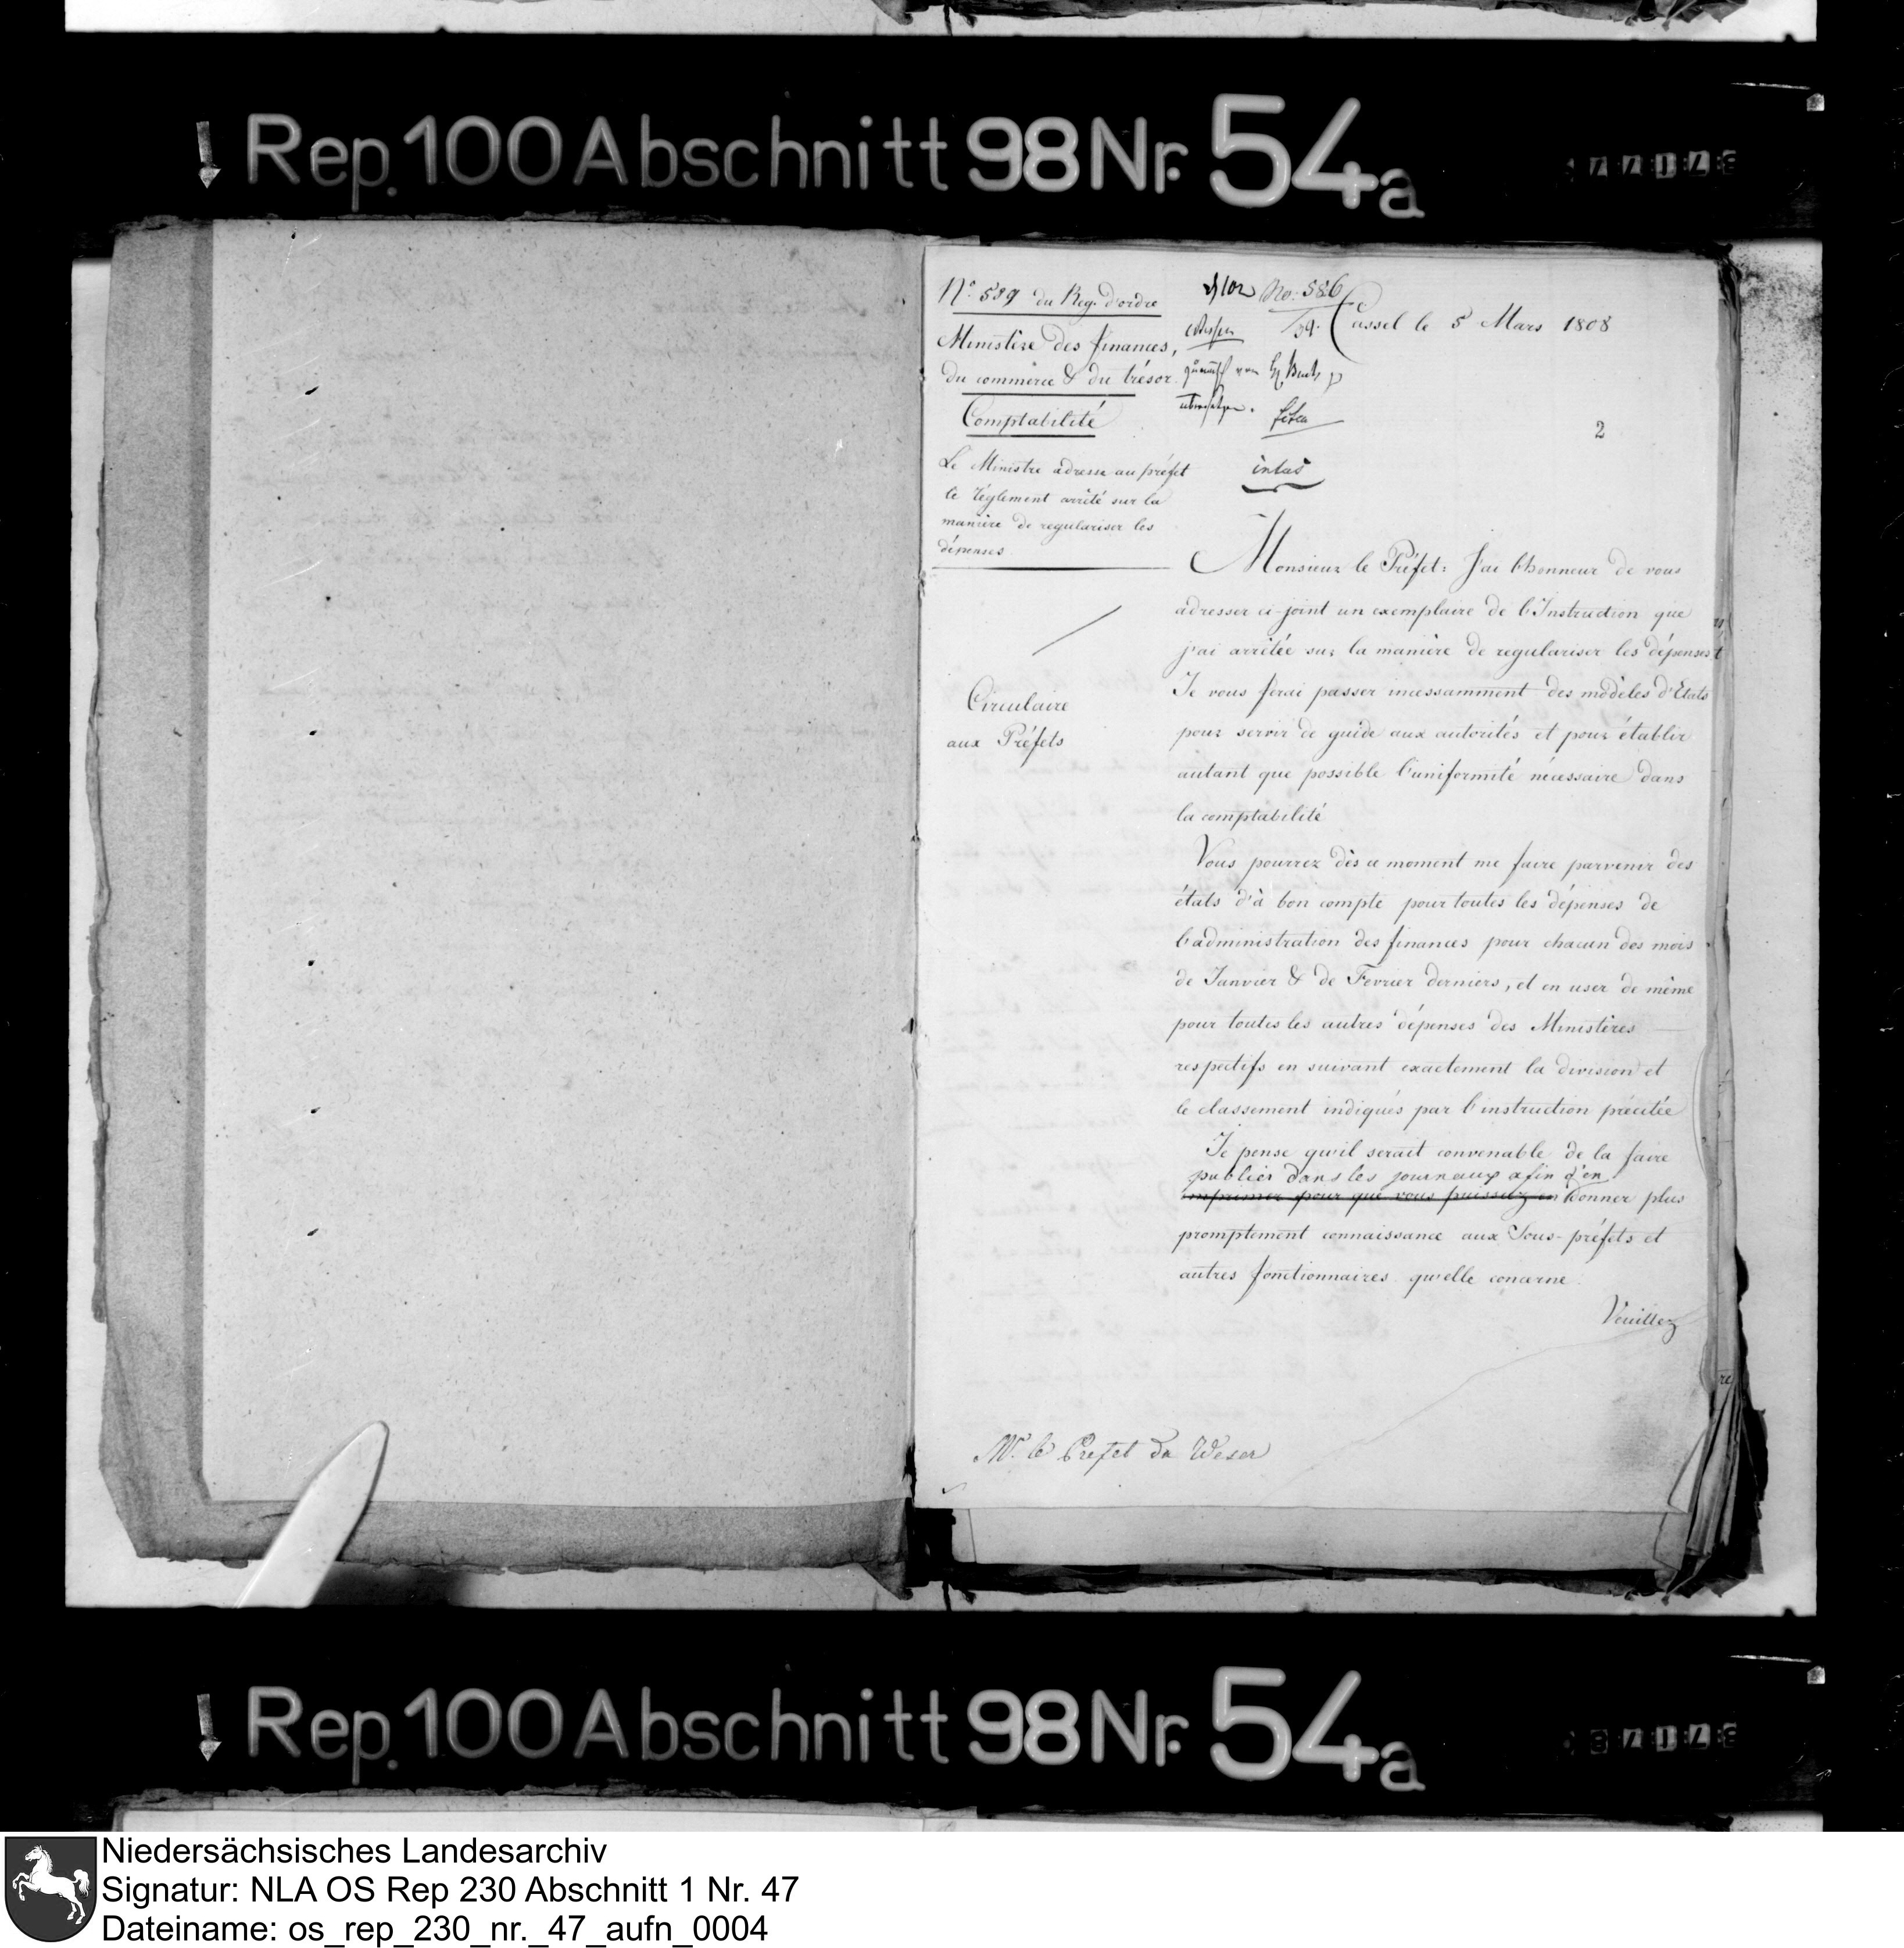 Rep. 100 Abschnitt 98 Nr. 54a
No. 589 du Reg. d'ordre
Ministère des finances,
du commerce & du trésor
Comptabilité
Le Ministre adresse au préfet
le règlement arrêté sur la
manière de regulariser les
dépenses.
Circulaire
aux Préfets
No: 586
Cassel le 5 Mars 1808
2
Monsieur le Préfet: J'ai l'honneur de vous
adresser ci-joint un exemplaire de l'Instruction que
j'ai arrêtée sur la manière de regulariser les dépenses
Je vous ferai passer incessamment des modèles d'Etats
pour servir de guide aux autorités et pour établir
autant que possible l'uniformité nécessaire dans
la comptabilité
Vous pourrez dès ce moment me faire parvenir des
états d'à bon compte pour toutes les dépenses de
l'administration des finances pour chacun des mois
de Janvier & de Fevrier derniers, et en user de même
pour toutes les autres dépenses des Ministères
respectifs en suivant exactement la division et
le classement indiqués par l'instruction précitée
Je pense qu'il serait convenable de la faire
publier dans les journaux afin d'en
imprimer pour que vous puissiez en donner plus
promptement connaissance aux Sous-préfets et
autres fonctionnaires qu'elle concerne.
Veuillez
Mr. le Prefet du Weser
Rep. 100 Abschnitt 98 Nr. 54a
Niedersächsisches Landesarchiv
Signatur: NLA OS Rep 230 Abschnitt 1 Nr. 47
Dateiname: os_rep_230_nr._47_aufn_0004